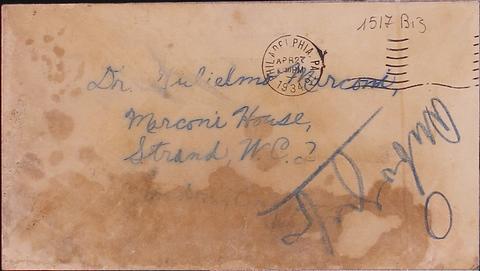 1517 Biz
PHILADELPHIA, PA.
APR 27
1934
Dr. Gulielmo Marconi,
Marconi House,
Strand, W.C.2